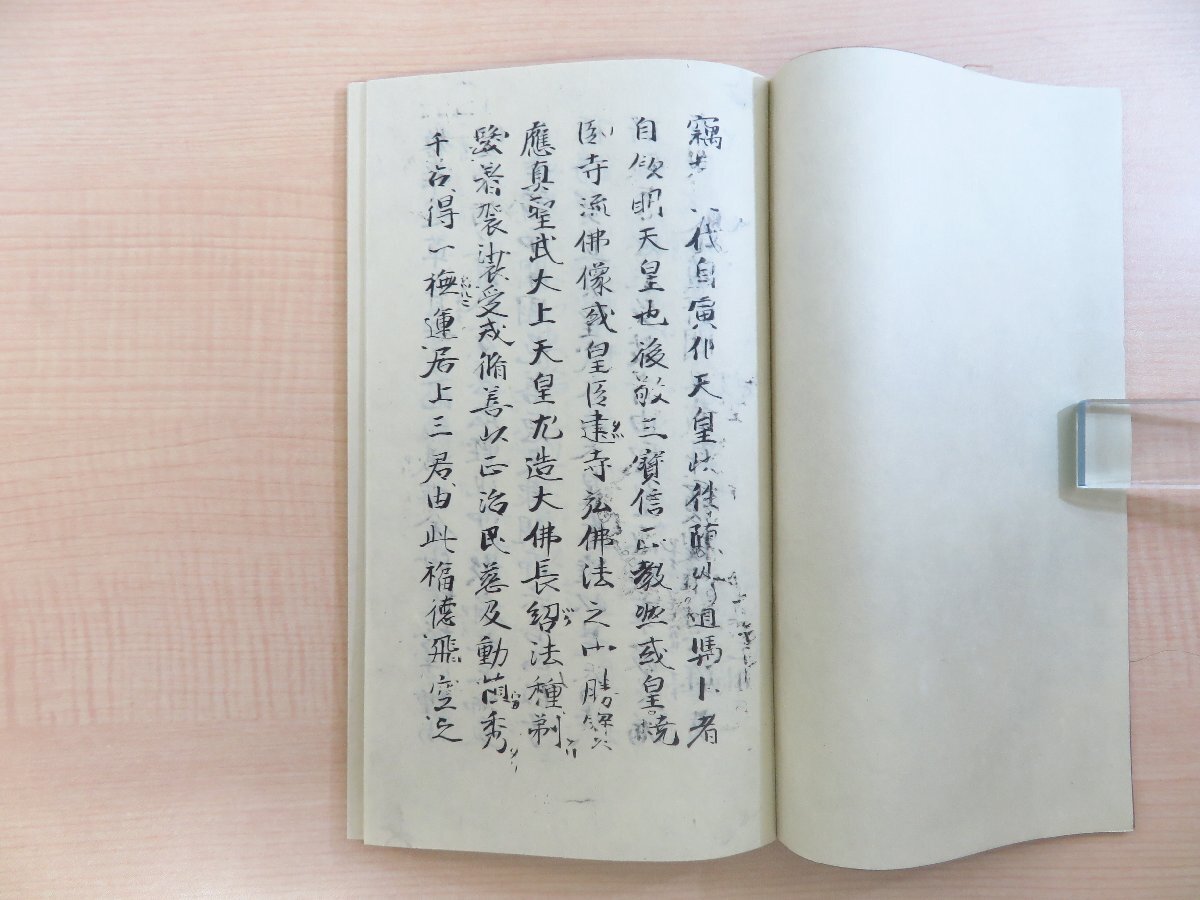 竊 代自宣化天皇以往随外道馮卜者
自欽明天皇也後敬三寶信正教然或皇焼
臣寺流佛像或皇臣建寺弘佛法之中勝
應真聖武大上天皇尤造大佛長紹法種剃
髮著袈裟受戒脩善以正治民慈及動植秀
千古得一撫運居上三君由此福德飛空之